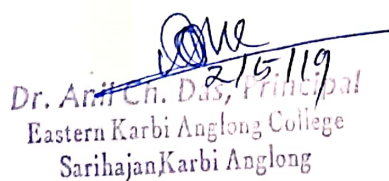 2/5/19
Dr. Anil Ch. Das, Principal
Eastern Karbi Anglong College
Sarihajan,Karbi Anglong